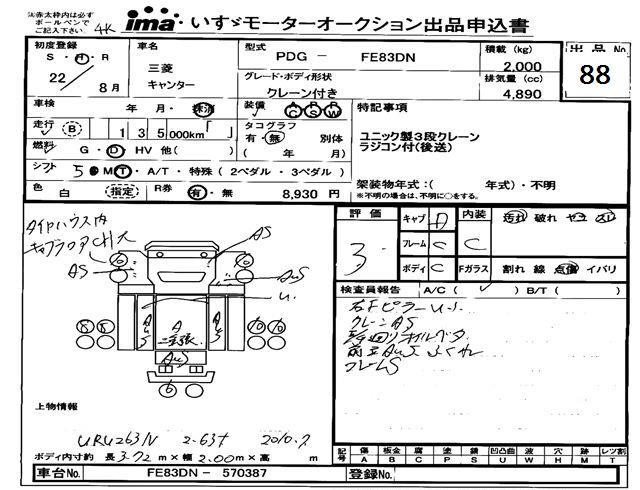 注)太赤枠内は必ず
ボールペンで
ご記入下さい
4K
ima いすゞモーターオークション出品申込書
初度登録
S・H・R
22/8月
車名
三菱
キャンター
型式
PDG - FE83DN
グレード・ボディ形状
クレーン付き
積載 (kg)
2,000
排気量 (cc)
4,890
出品No
88
車検 年 月・抹消
装備 AC PS RW
特記事項
走行 B 1 3 5 000km
タコグラフ
有・無 別体
( 年 月)
ユニック製3段クレーン
ラジコン付(後送)
燃料 G・D HV 他( )
シフト 5 MT・A/T・特殊(2ペダル・3ペダル)
色 白 (指定) R券 有・無 8,930 円
架装物年式:( 年式)・不明
※不明の場合は、不明に○をする。
評価 3
キャブ A
フレーム C
ボディ C
内装 C 汚れ 破れ ヤケ スレ
Fガラス 割れ 線 点傷 イバリ
タイヤハウス内
キャブフロアCH大
AS
AS
AuS
u.
AuS
A
AuS
AuS
6
8 8
10 10
6
検査員報告 A/C( ✓ ) B/T( )
右Fピラーu.s
クレーンAS
フレームS
上物情報
URU263N 2.63t 2010.7
ボディ内寸約 長3.72m×幅2.00m×高 m
記号 傷 A 板金 B 腐 C 塗 P 錆 S 凹凸曲 U 波 W 穴 H 跡 M レツ割 T
車台No. FE83DN - 570387 登録No.